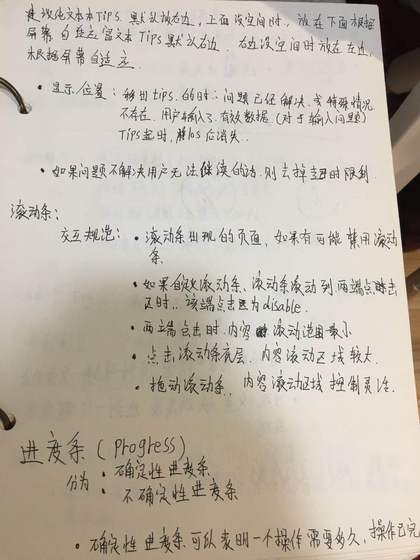 文本 Tips 默认放右边,上面没空间时,放在下面 根据
屏幕自适应 富文本 Tips 默认右边 右边没空间时放在左边,
根据屏幕自适应
• 显示位置: 移出tips的时: 问题已经解决 或特殊情况
不存在 用户输入了有效数据 (对于输入问题)
Tips 10s后消失.
• 如果问题不解决用户无法继续的话 则去掉时限制
滚动条:
交互规范: • 滚动条出现的页面, 如果有可能 禁用滚动
条
• 如果自定义滚动条、滚动条滚动到 两端点击
区时, 该端点击区为disable.
• 两端点击时 内容滚动范围最小
• 点击滚动条底层, 内容滚动区域较大.
• 拖动滚动条, 内容滚动区域 控制灵活.
进度条 (Progress)
分为: • 确定性进度条
• 不确定性进度条
• 确定性进度条 可以表明一个操作需要多久, 操作已完